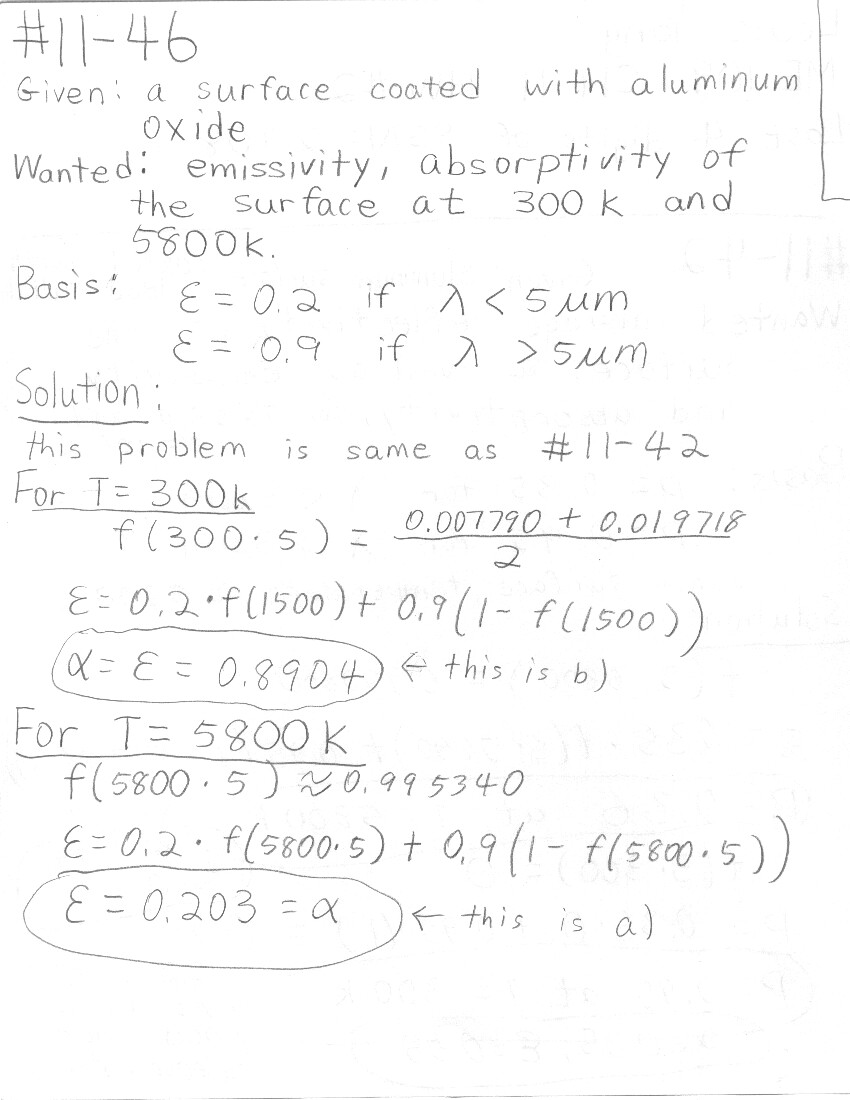 #11-46
Given: a surface coated with aluminum
oxide
Wanted: emissivity, absorptivity of
the surface at 300 k and
5800k.
Basis: ε = 0.2 if λ < 5 μm
ε = 0.9 if λ > 5μm
Solution:
this problem is same as #11-42
For T = 300k
f(300·5) = (0.007790 + 0.019718)/2
ε = 0.2·f(1500) + 0.9(1 - f(1500))
α = ε = 0.8904 ← this is b)
For T = 5800k
f(5800·5) ≈ 0.995340
ε = 0.2 · f(5800·5) + 0.9(1 - f(5800·5))
ε = 0.203 = α ← this is a)